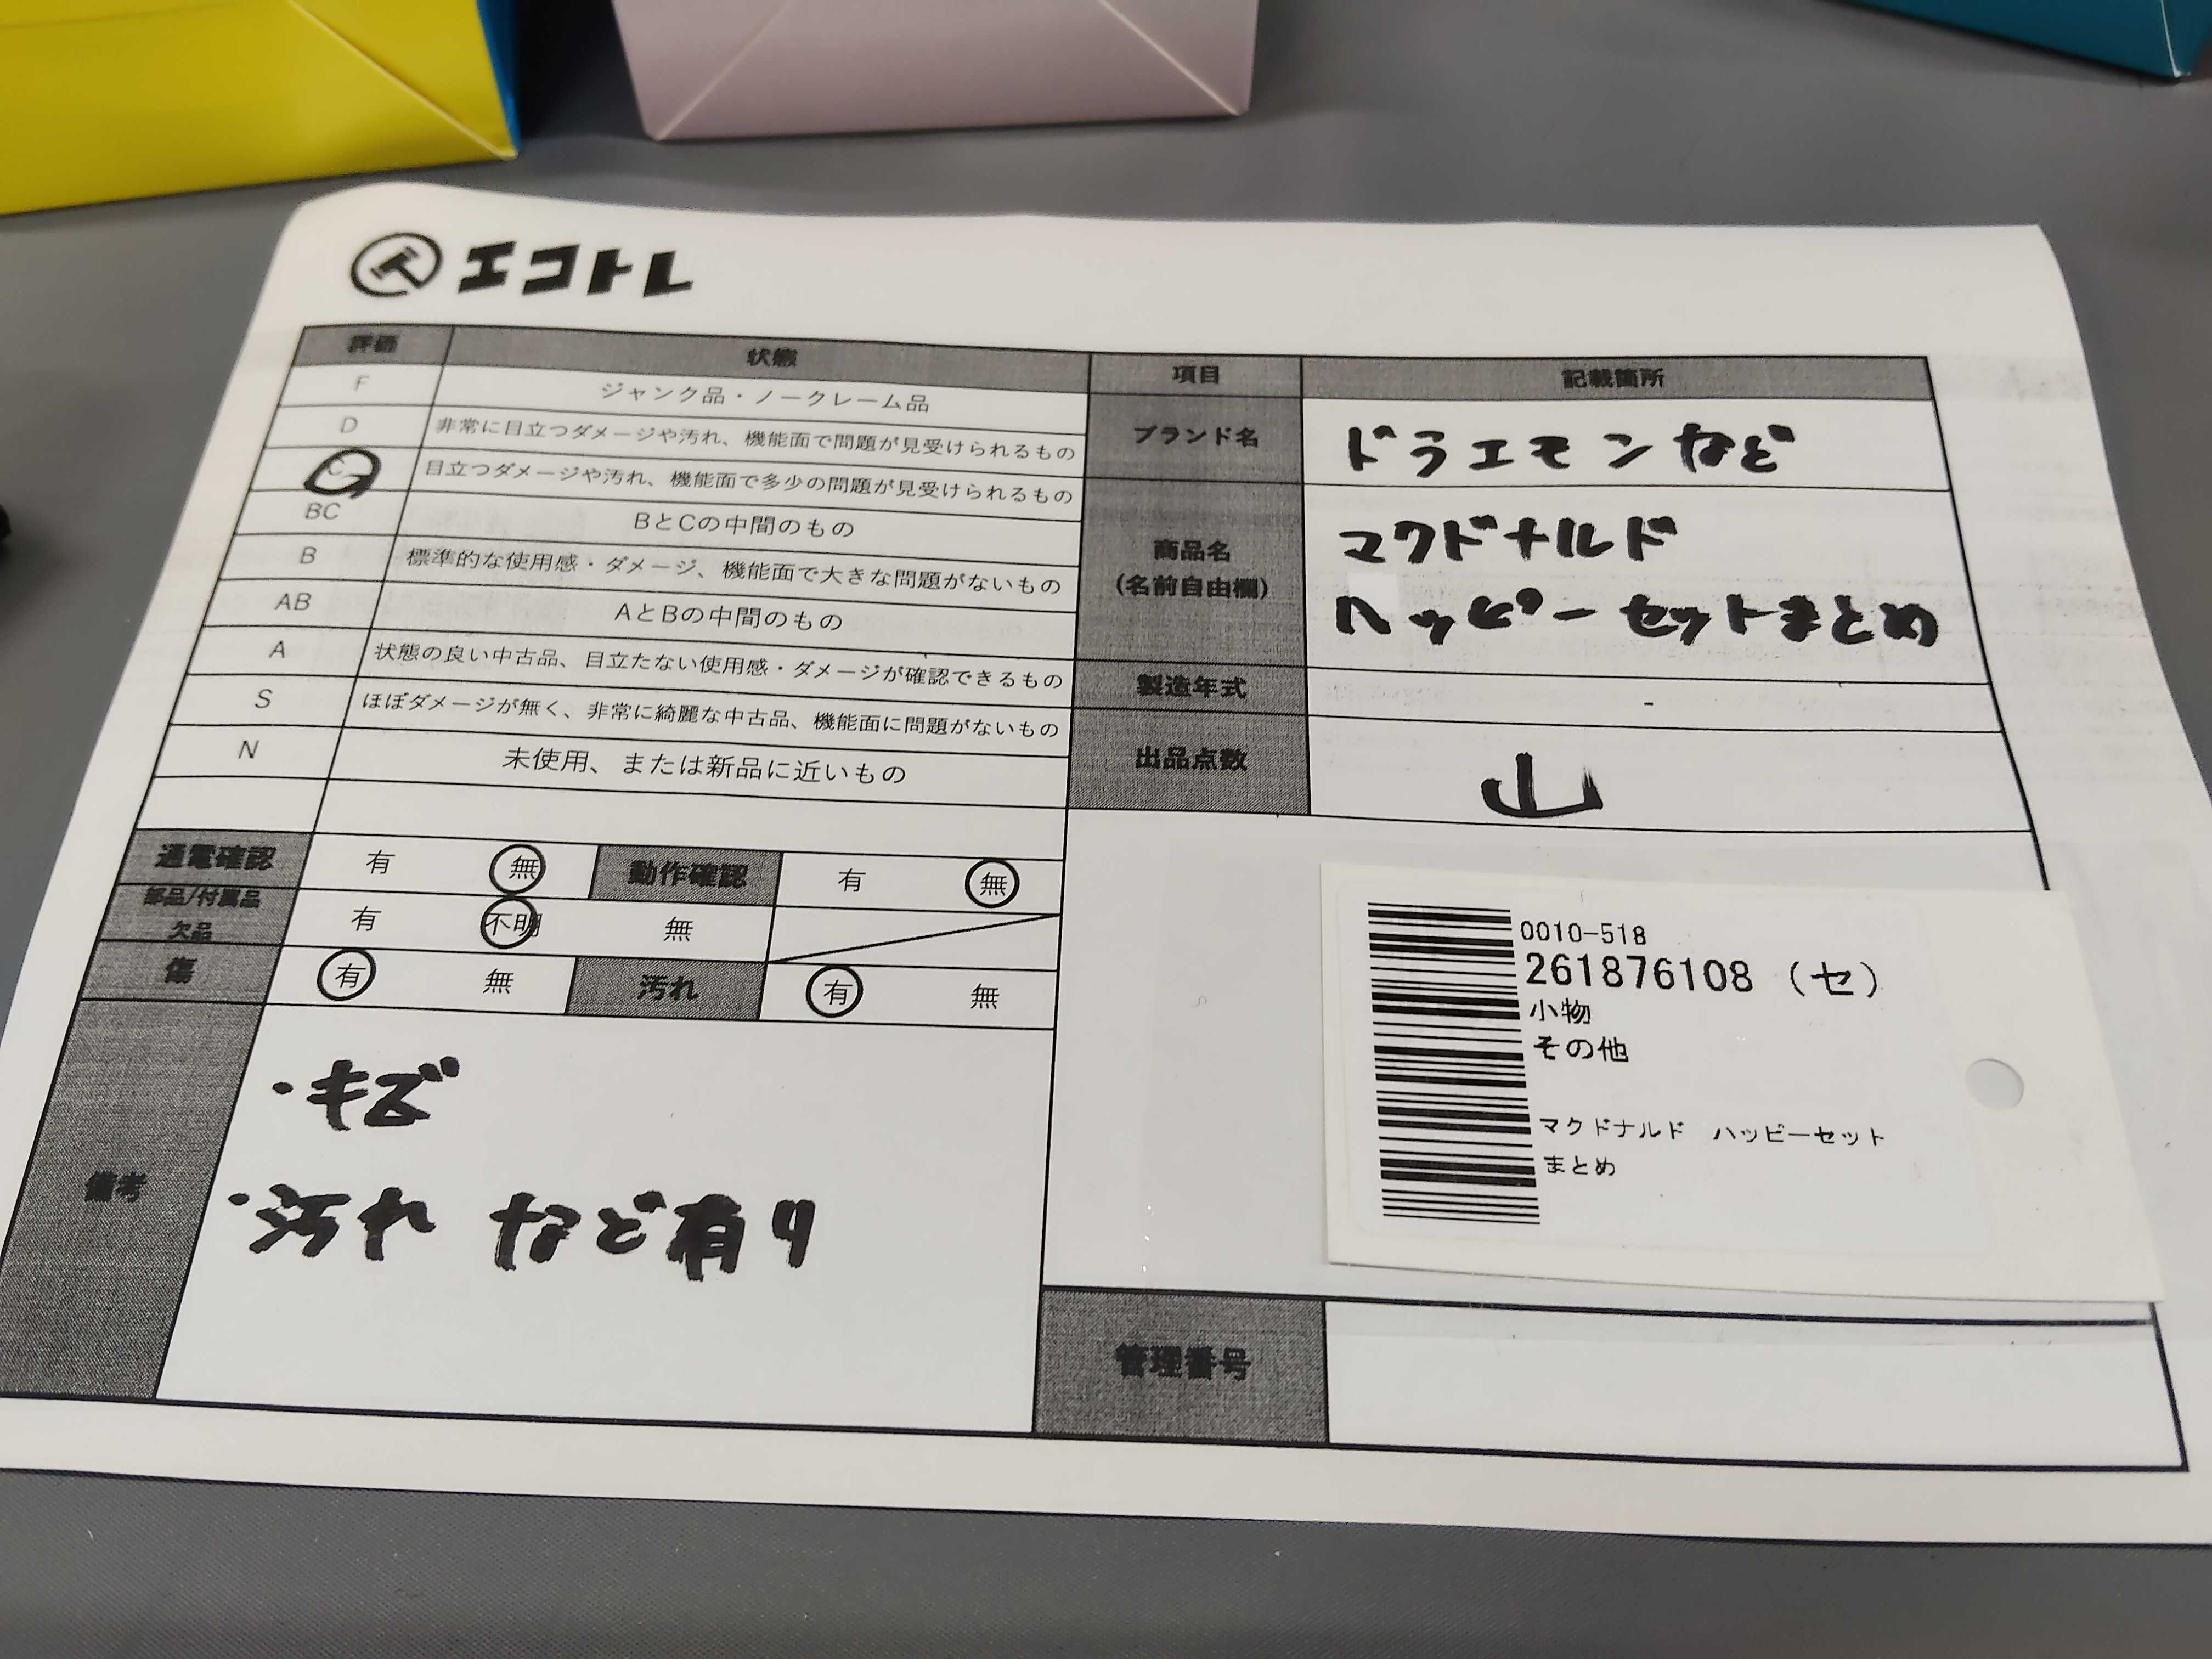 エコトレ
評価 状態
F ジャンク品・ノークレーム品
D 非常に目立つダメージや汚れ、機能面で問題が見受けられるもの
C 目立つダメージや汚れ、機能面で多少の問題が見受けられるもの
BC BとCの中間のもの
B 標準的な使用感・ダメージ、機能面で大きな問題がないもの
AB AとBの中間のもの
A 状態の良い中古品、目立たない使用感・ダメージが確認できるもの
S ほぼダメージが無く、非常に綺麗な中古品、機能面に問題がないもの
N 未使用、または新品に近いもの
通電確認 有 無 動作確認 有 無
部品/付属品
欠品 有 不明 無
傷 有 無 汚れ 有 無
備考
・キズ
・汚れ など有り
項目 記載箇所
ブランド名 ドラエモンなど
商品名
(名前自由欄)
マクドナルド
ハッピーセットまとめ
製造年式 -
出品点数 山
0010-518
261876108 (セ)
小物
その他
マクドナルド ハッピーセット
まとめ
管理番号